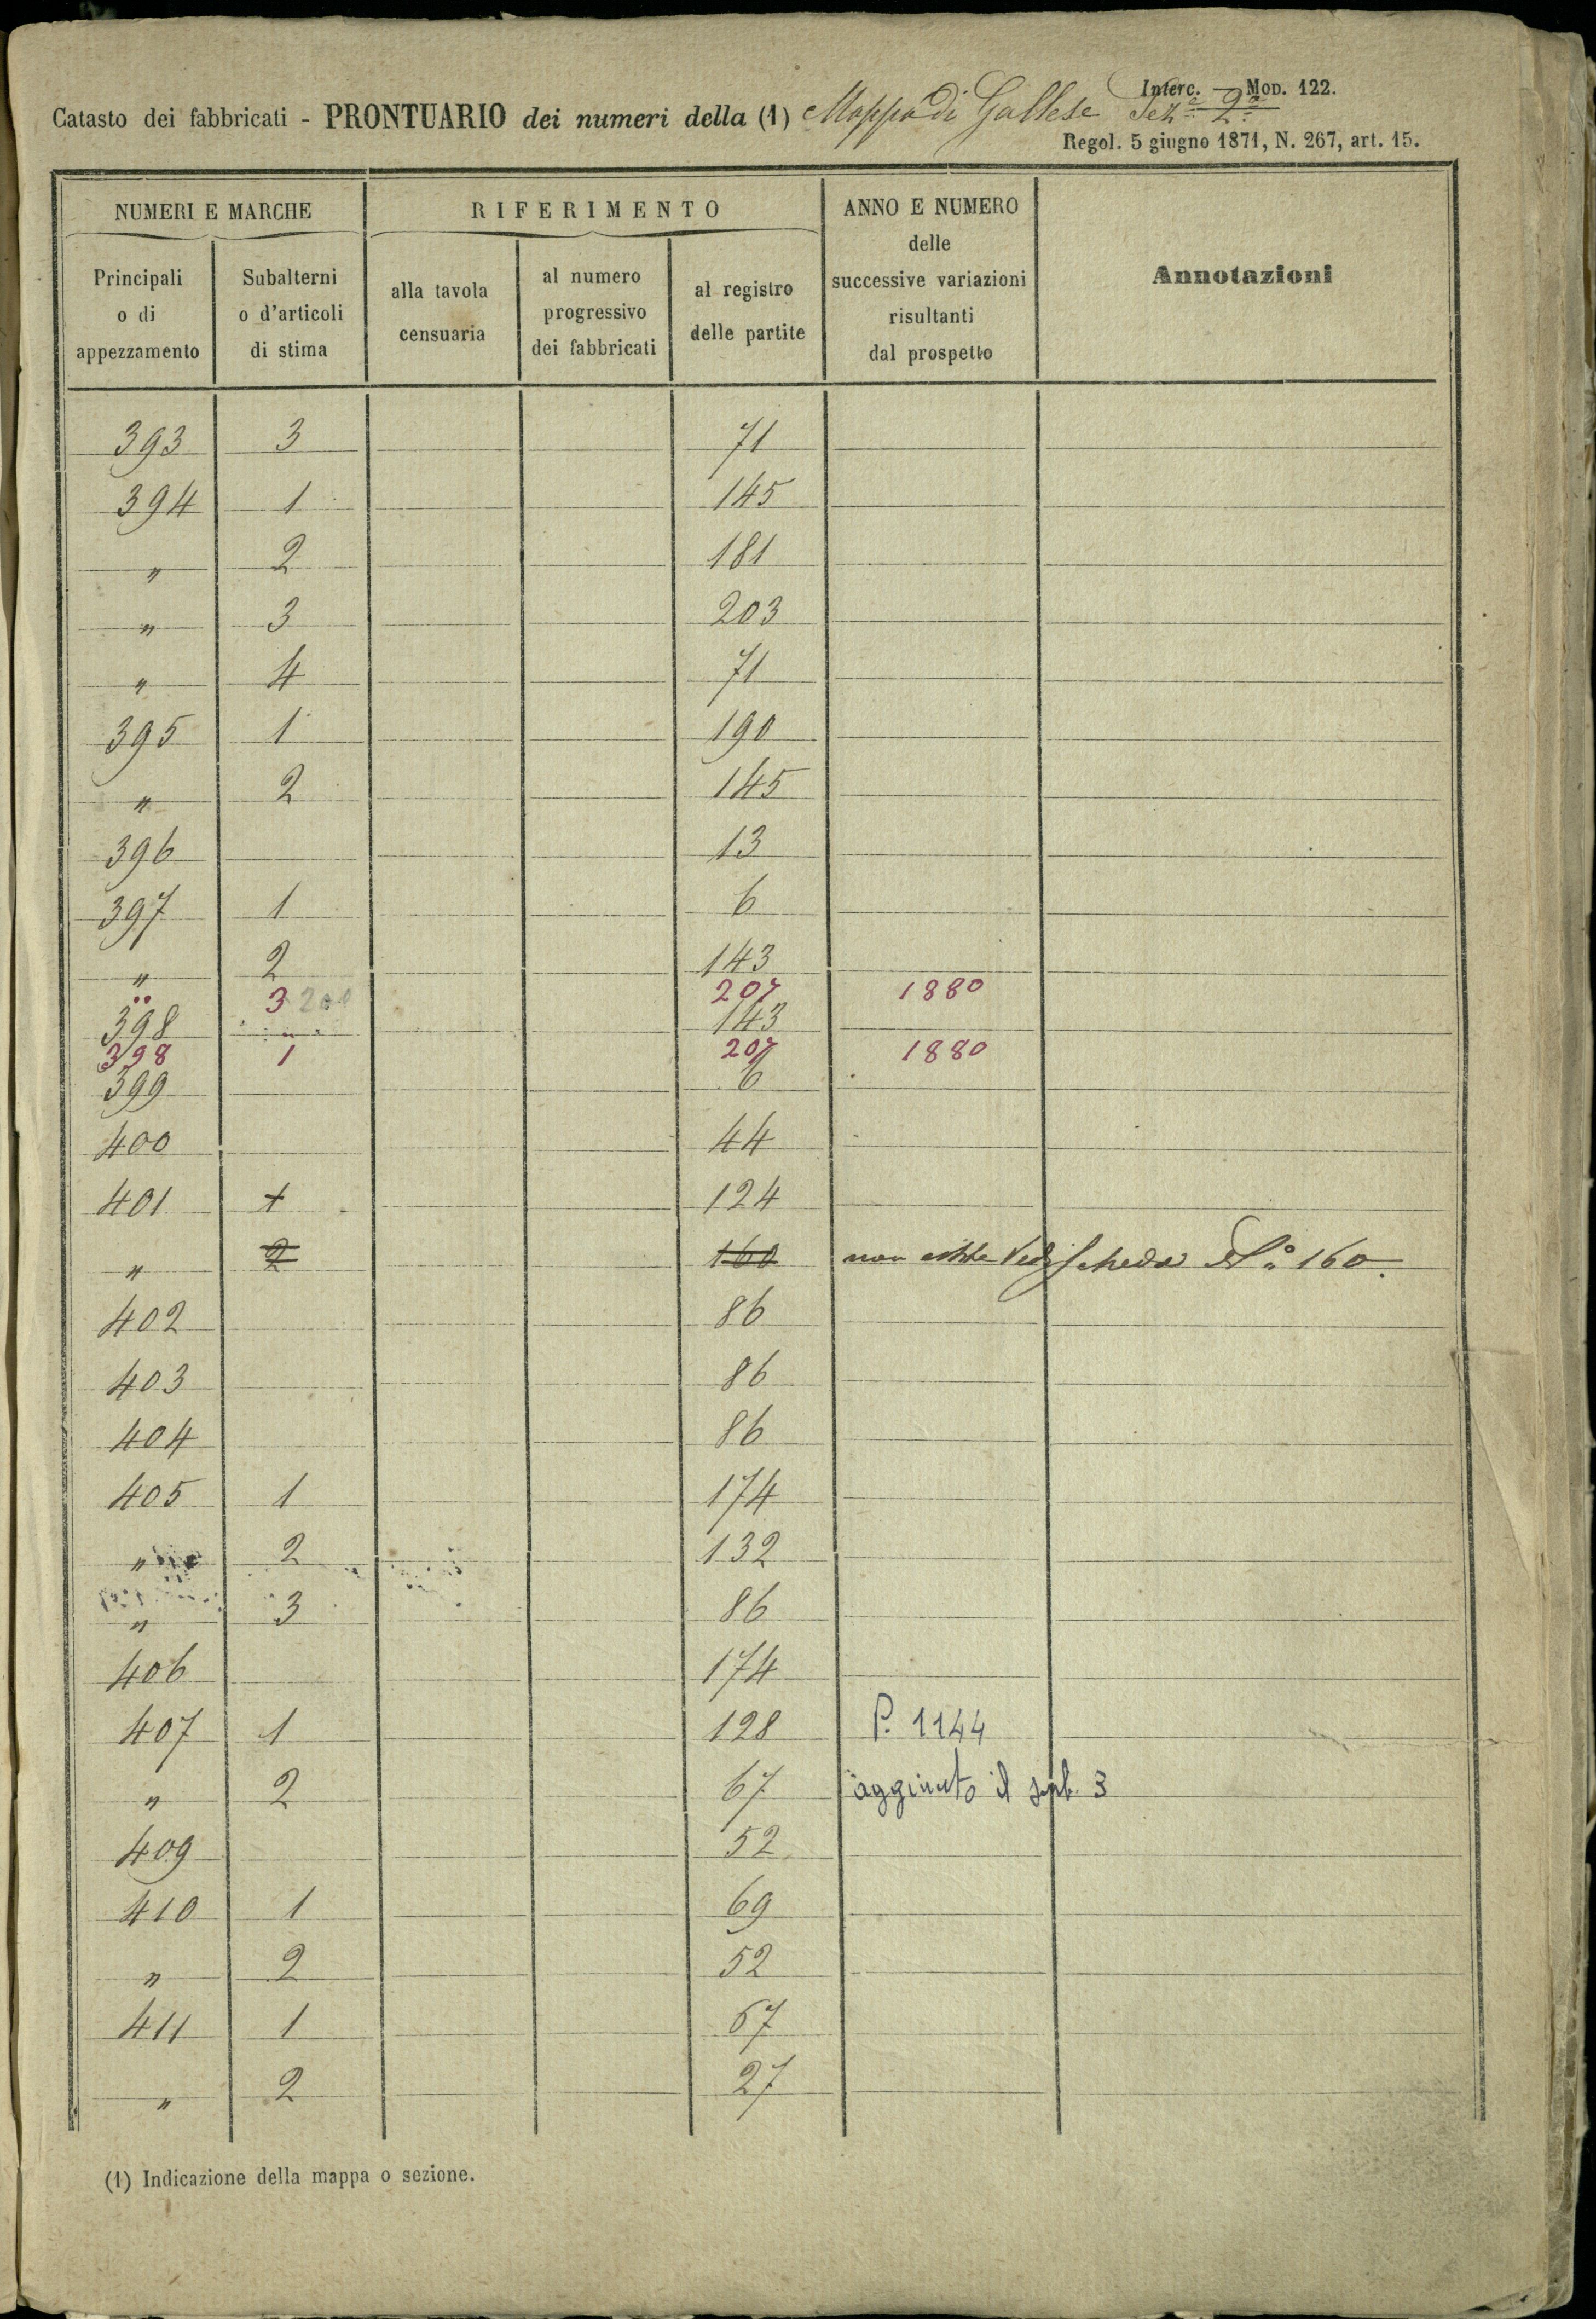 Interc. — Mod. 122.
Catasto dei fabbricati - PRONTUARIO dei numeri della (1) Mappa di Gallese Sez.e 2.a
Regol. 5 giugno 1871, N. 267, art. 15.
NUMERI E MARCHE RIFERIMENTO ANNO E NUMERO delle successive variazioni risultanti dal prospetto Annotazioni
Principali o di appezzamento Subalterni o d'articoli di stima alla tavola censuaria al numero progressivo dei fabbricati al registro delle partite
393 3 71
394 1 145
" 2 181
" 3 203
" 4 71
395 1 190
" 2 145
396 13
397 1 6
" 2 143
" 3 207 1880
398 143
398 1 207 1880
399 6
400 44
401 + 124
" 2 160 non esiste Vedi scheda N.o 160.
402 86
403 86
404 86
405 1 174
" 2 132
" 3 86
406 174
407 1 128 P. 1144
" 2 67 aggiunto il sub. 3
409 52
410 1 69
" 2 52
411 1 67
" 2 27
(1) Indicazione della mappa o sezione.